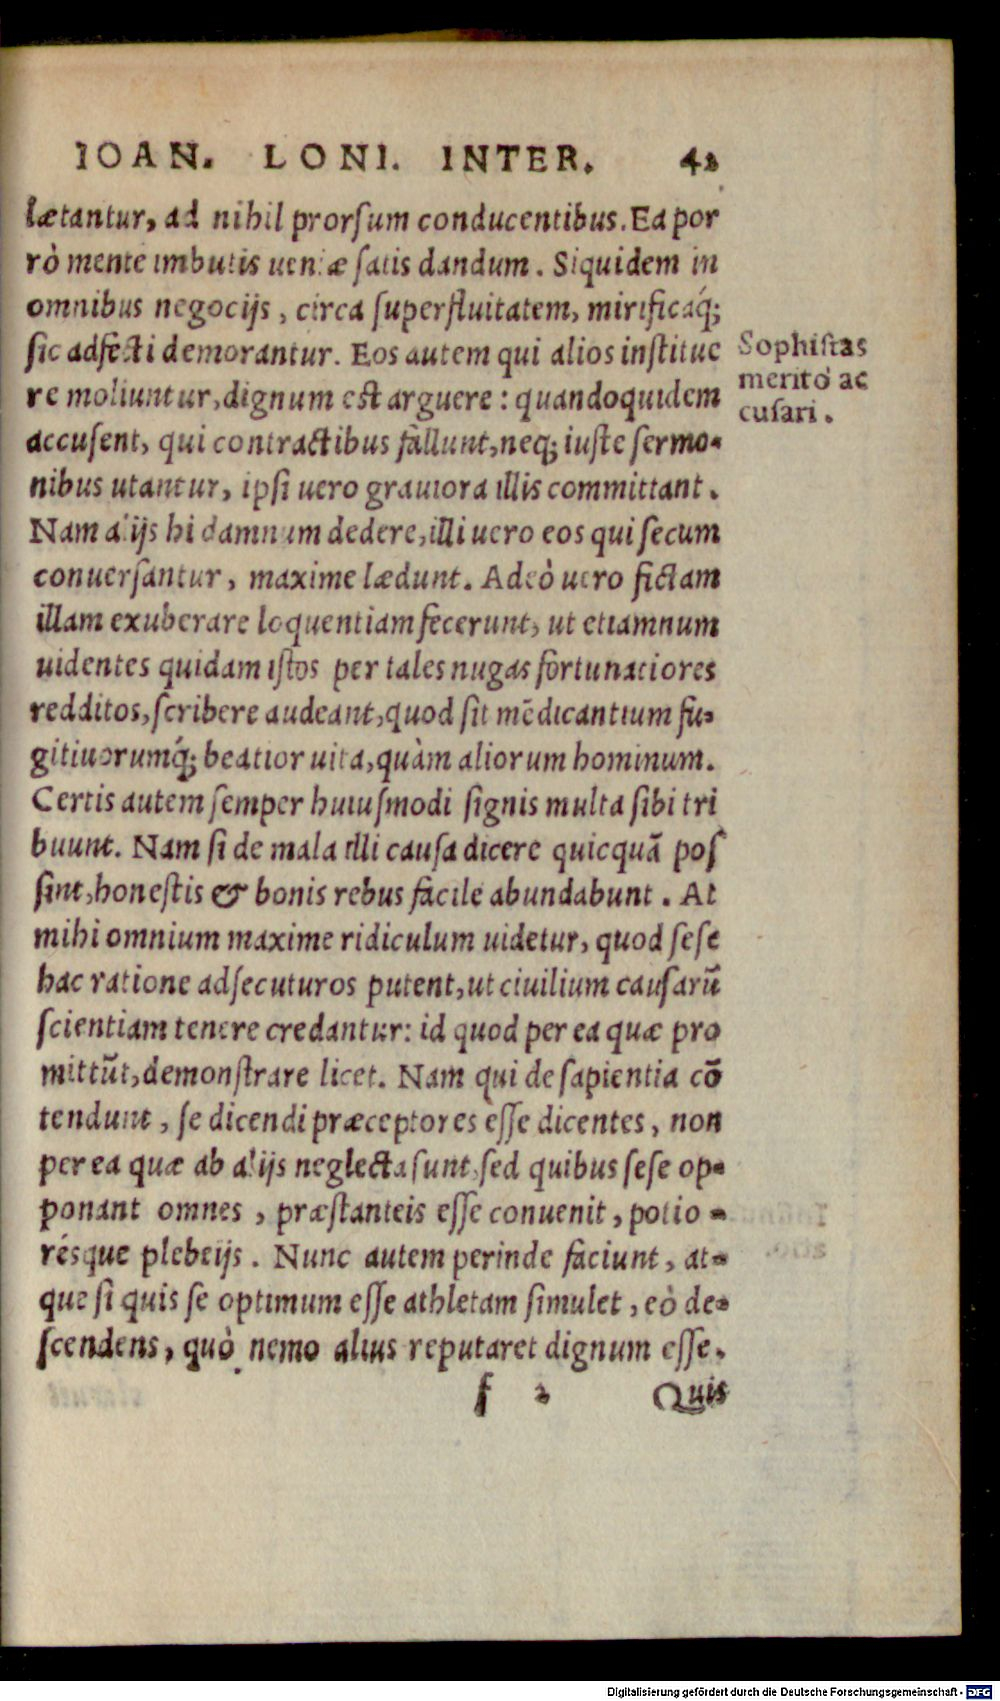 IOAN. LONI. INTER. 42
lætantur, ad nihil prorſum conducentibus. Ea por
rò mente imbutis ueniæ ſatis dandum. Siquidem in
omnibus negocijs, circa ſuperfluitatem, mirificaq́;
ſic adfecti demorantur. Eos autem qui alios inſtitue
re moliuntur, dignum eſt arguere: quandoquidem
accuſent, qui contractibus fallunt, neq; iuſte ſermo-
nibus utantur, ipſi uero grauiora illis committant.
Nam alijs hi damnum dedere, illi uero eos qui ſecum
conuerſantur, maxime lædunt. Adeò uero fictam
illam exuberare loquentiam fecerunt, ut etiamnum
uidentes quidam iſtos per tales nugas fortunatiores
redditos, ſcribere audeant, quod ſit mēdicantium fu-
gitiuorumq́; beatior uita, quàm aliorum hominum.
Certis autem ſemper huiuſmodi ſignis multa ſibi tri
buunt. Nam ſi de mala illi cauſa dicere quicquā poſ
ſint, honeſtis & bonis rebus facile abundabunt. At
mihi omnium maxime ridiculum uidetur, quod ſeſe
hac ratione adſecuturos putent, ut ciuilium cauſarū
ſcientiam tenere credantur: id quod per ea quæ pro
mittūt, demonſtrare licet. Nam qui de ſapientia cō
tendunt, ſe dicendi præceptores eſſe dicentes, non
per ea quæ ab alijs neglecta ſunt, ſed quibus ſeſe op-
ponant omnes, præſtanteis eſſe conuenit, potio-
résque plebeijs. Nunc autem perinde faciunt, at-
que ſi quis ſe optimum eſſe athletam ſimulet, eò de-
ſcendens, quò nemo alius reputaret dignum eſſe.
f 2 Quis
Sophiſtas
meritò ac
cuſari.
Digitalisierung gefördert durch die Deutsche Forschungsgemeinschaft - DFG